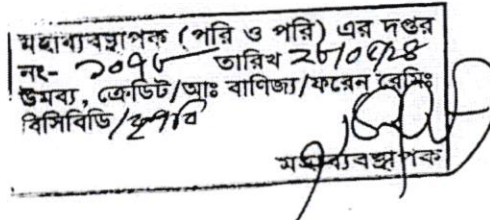 মহাব্যবস্থাপক (পরি ও পরি) এর দপ্তর
নং- তারিখ
উমব্য, ক্রেডিট/আঃ বাণিজ্য/ফরেন রেমিঃ
বিসিবিডি/
মহাব্যবস্থাপক